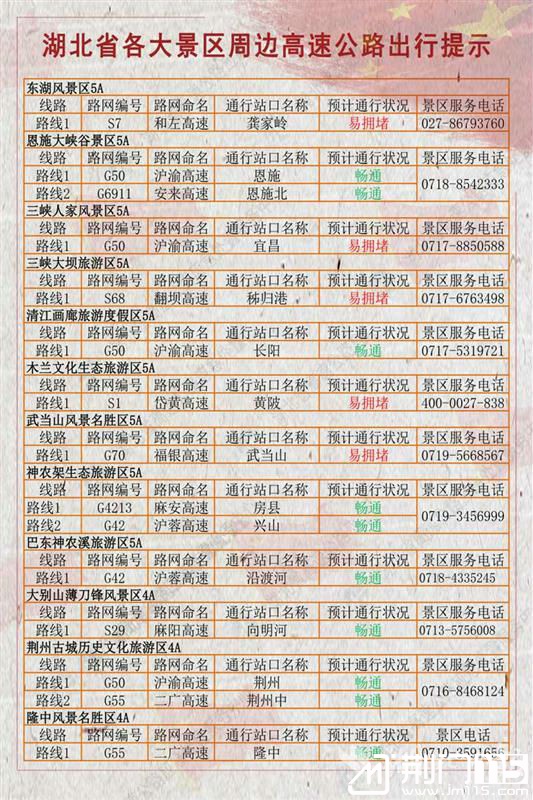 湖北省各大景区周边高速公路出行提示
东湖风景区5A
线路 路网编号 路网命名 通行站口名称 预计通行状况 景区服务电话
路线1 S7 和左高速 龚家岭 易拥堵 027-86793760
恩施大峡谷景区5A
线路 路网编号 路网命名 通行站口名称 预计通行状况 景区服务电话
路线1 G50 沪渝高速 恩施 畅通 0718-8542333
路线2 G6911 安来高速 恩施北 畅通
三峡人家风景区5A
线路 路网编号 路网命名 通行站口名称 预计通行状况 景区服务电话
路线1 G50 沪渝高速 宜昌 易拥堵 0717-8850588
三峡大坝旅游区5A
线路 路网编号 路网命名 通行站口名称 预计通行状况 景区服务电话
路线1 S68 翻坝高速 秭归港 易拥堵 0717-6763498
清江画廊旅游度假区5A
线路 路网编号 路网命名 通行站口名称 预计通行状况 景区服务电话
路线1 G50 沪渝高速 长阳 畅通 0717-5319721
木兰文化生态旅游区5A
线路 路网编号 路网命名 通行站口名称 预计通行状况 景区服务电话
路线1 S1 岱黄高速 黄陂 易拥堵 400-0027-838
武当山风景名胜区5A
线路 路网编号 路网命名 通行站口名称 预计通行状况 景区服务电话
路线1 G70 福银高速 武当山 易拥堵 0719-5668567
神农架生态旅游区5A
线路 路网编号 路网命名 通行站口名称 预计通行状况 景区服务电话
路线1 G4213 麻安高速 房县 畅通 0719-3456999
路线2 G42 沪蓉高速 兴山 畅通
巴东神农溪旅游区5A
线路 路网编号 路网命名 通行站口名称 预计通行状况 景区服务电话
路线1 G42 沪蓉高速 沿渡河 畅通 0718-4335245
大别山薄刀锋风景区4A
线路 路网编号 路网命名 通行站口名称 预计通行状况 景区服务电话
路线1 S29 麻阳高速 向明河 畅通 0713-5756008
荆州古城历史文化旅游区4A
线路 路网编号 路网命名 通行站口名称 预计通行状况 景区服务电话
路线1 G50 沪渝高速 荆州 畅通 0716-8468124
路线2 G55 二广高速 荆州中 畅通
隆中风景名胜区4A
线路 路网编号 路网命名 通行站口名称 预计通行状况 景区电话
路线1 G55 二广高速 隆中 畅通 0710-3591656
荆门115
www.jm115.com